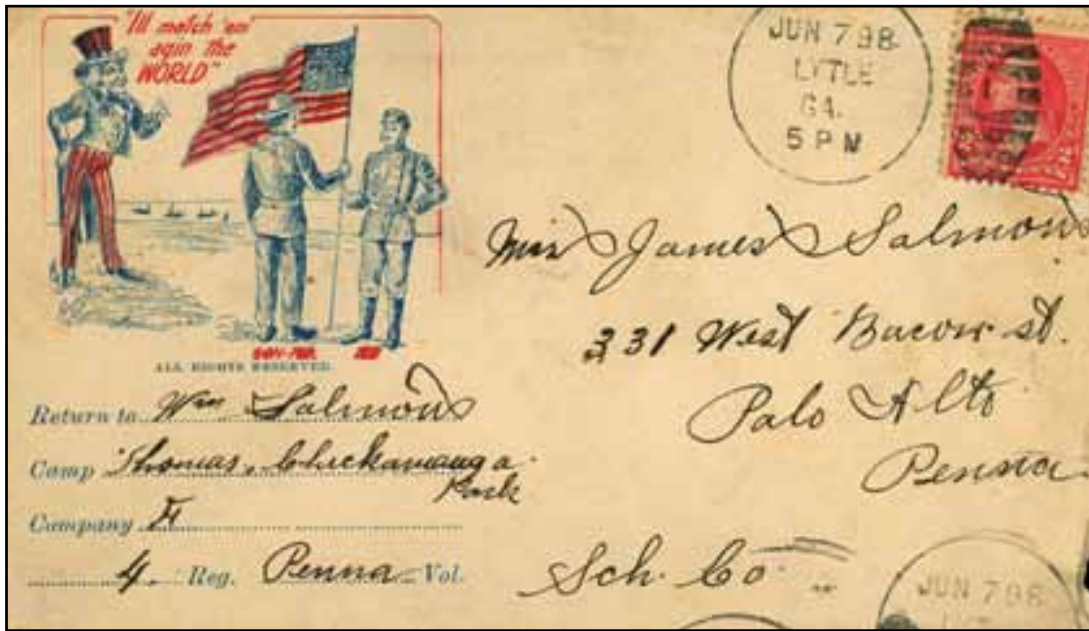 "I'll match 'em
agin the
WORLD"
ALL RIGHTS RESERVED.
Return to Wm Salmon
Camp Thomas, Chickamauga
Park
Company F
4. Reg. Penna Vol.
JUN 7 98
LYTLE
GA.
5 PM
James Salmon
331 West Bacon st.
Palo Alto
Penna
Sch. Co
JUN 7 98